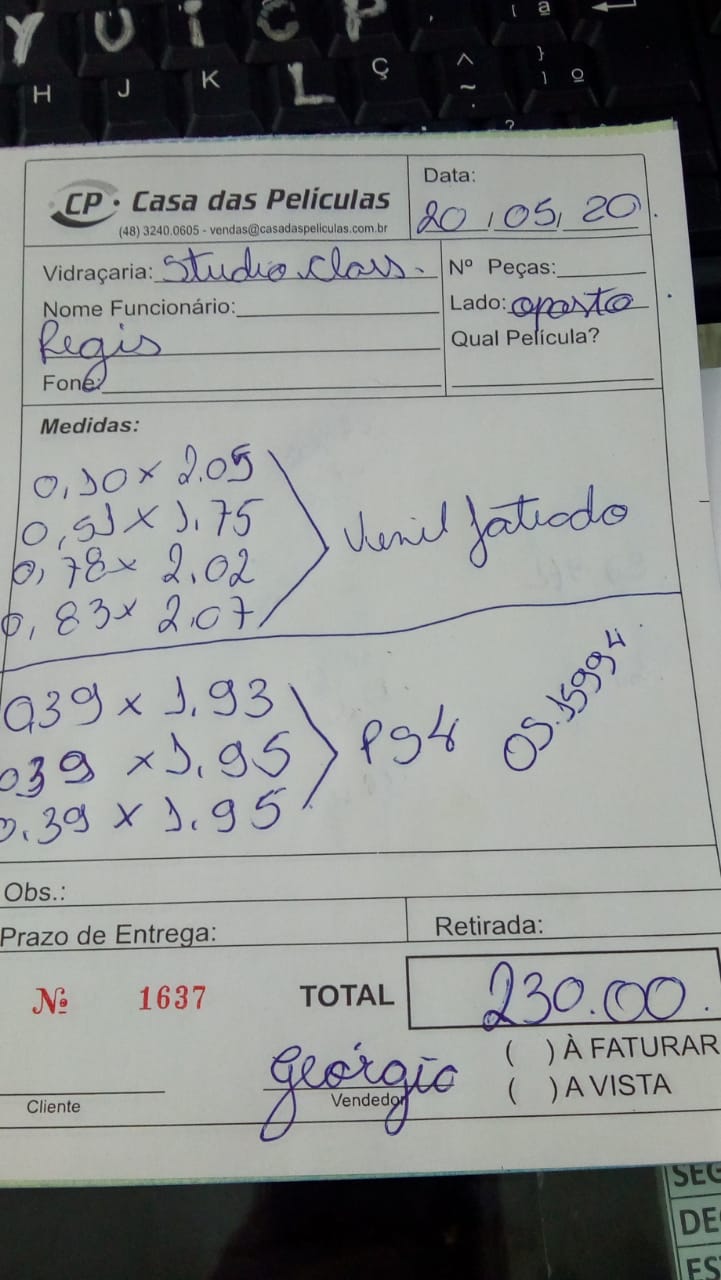 Y U I C P
H J K L Ç ^ ~ } ] ª º
?
CP · Casa das Películas
(48) 3240.0605 - vendas@casadaspeliculas.com.br
Data:
20, 05, 20.
Vidraçaria: Studio Class.
Nº Peças:
Nome Funcionário:
Lado: oposto
Regis
Qual Película?
Fone:
Medidas:
0,10 x 2.05
0,51 x 1.75
0,78 x 2.02
0,83 x 2.07
Vienil Jatiado
039 x 1.93
039 x 1.95
0.39 x 1.95
PS4
05.15994.
Obs.:
Prazo de Entrega:
Retirada:
Nº 1637
TOTAL
230.00.
( ) À FATURAR
( ) A VISTA
Geórgio
Cliente
Vendedor
SEG
DE
ES